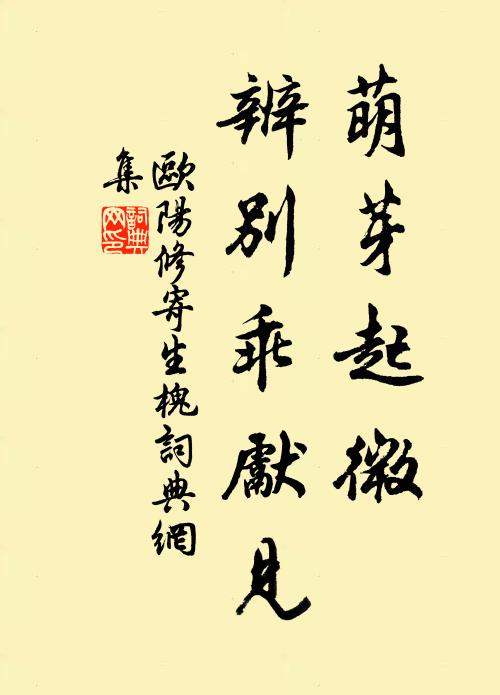 萌芽起微
辨別乖獻見
歐陽修寄生槐詞典網
集
詞典網印